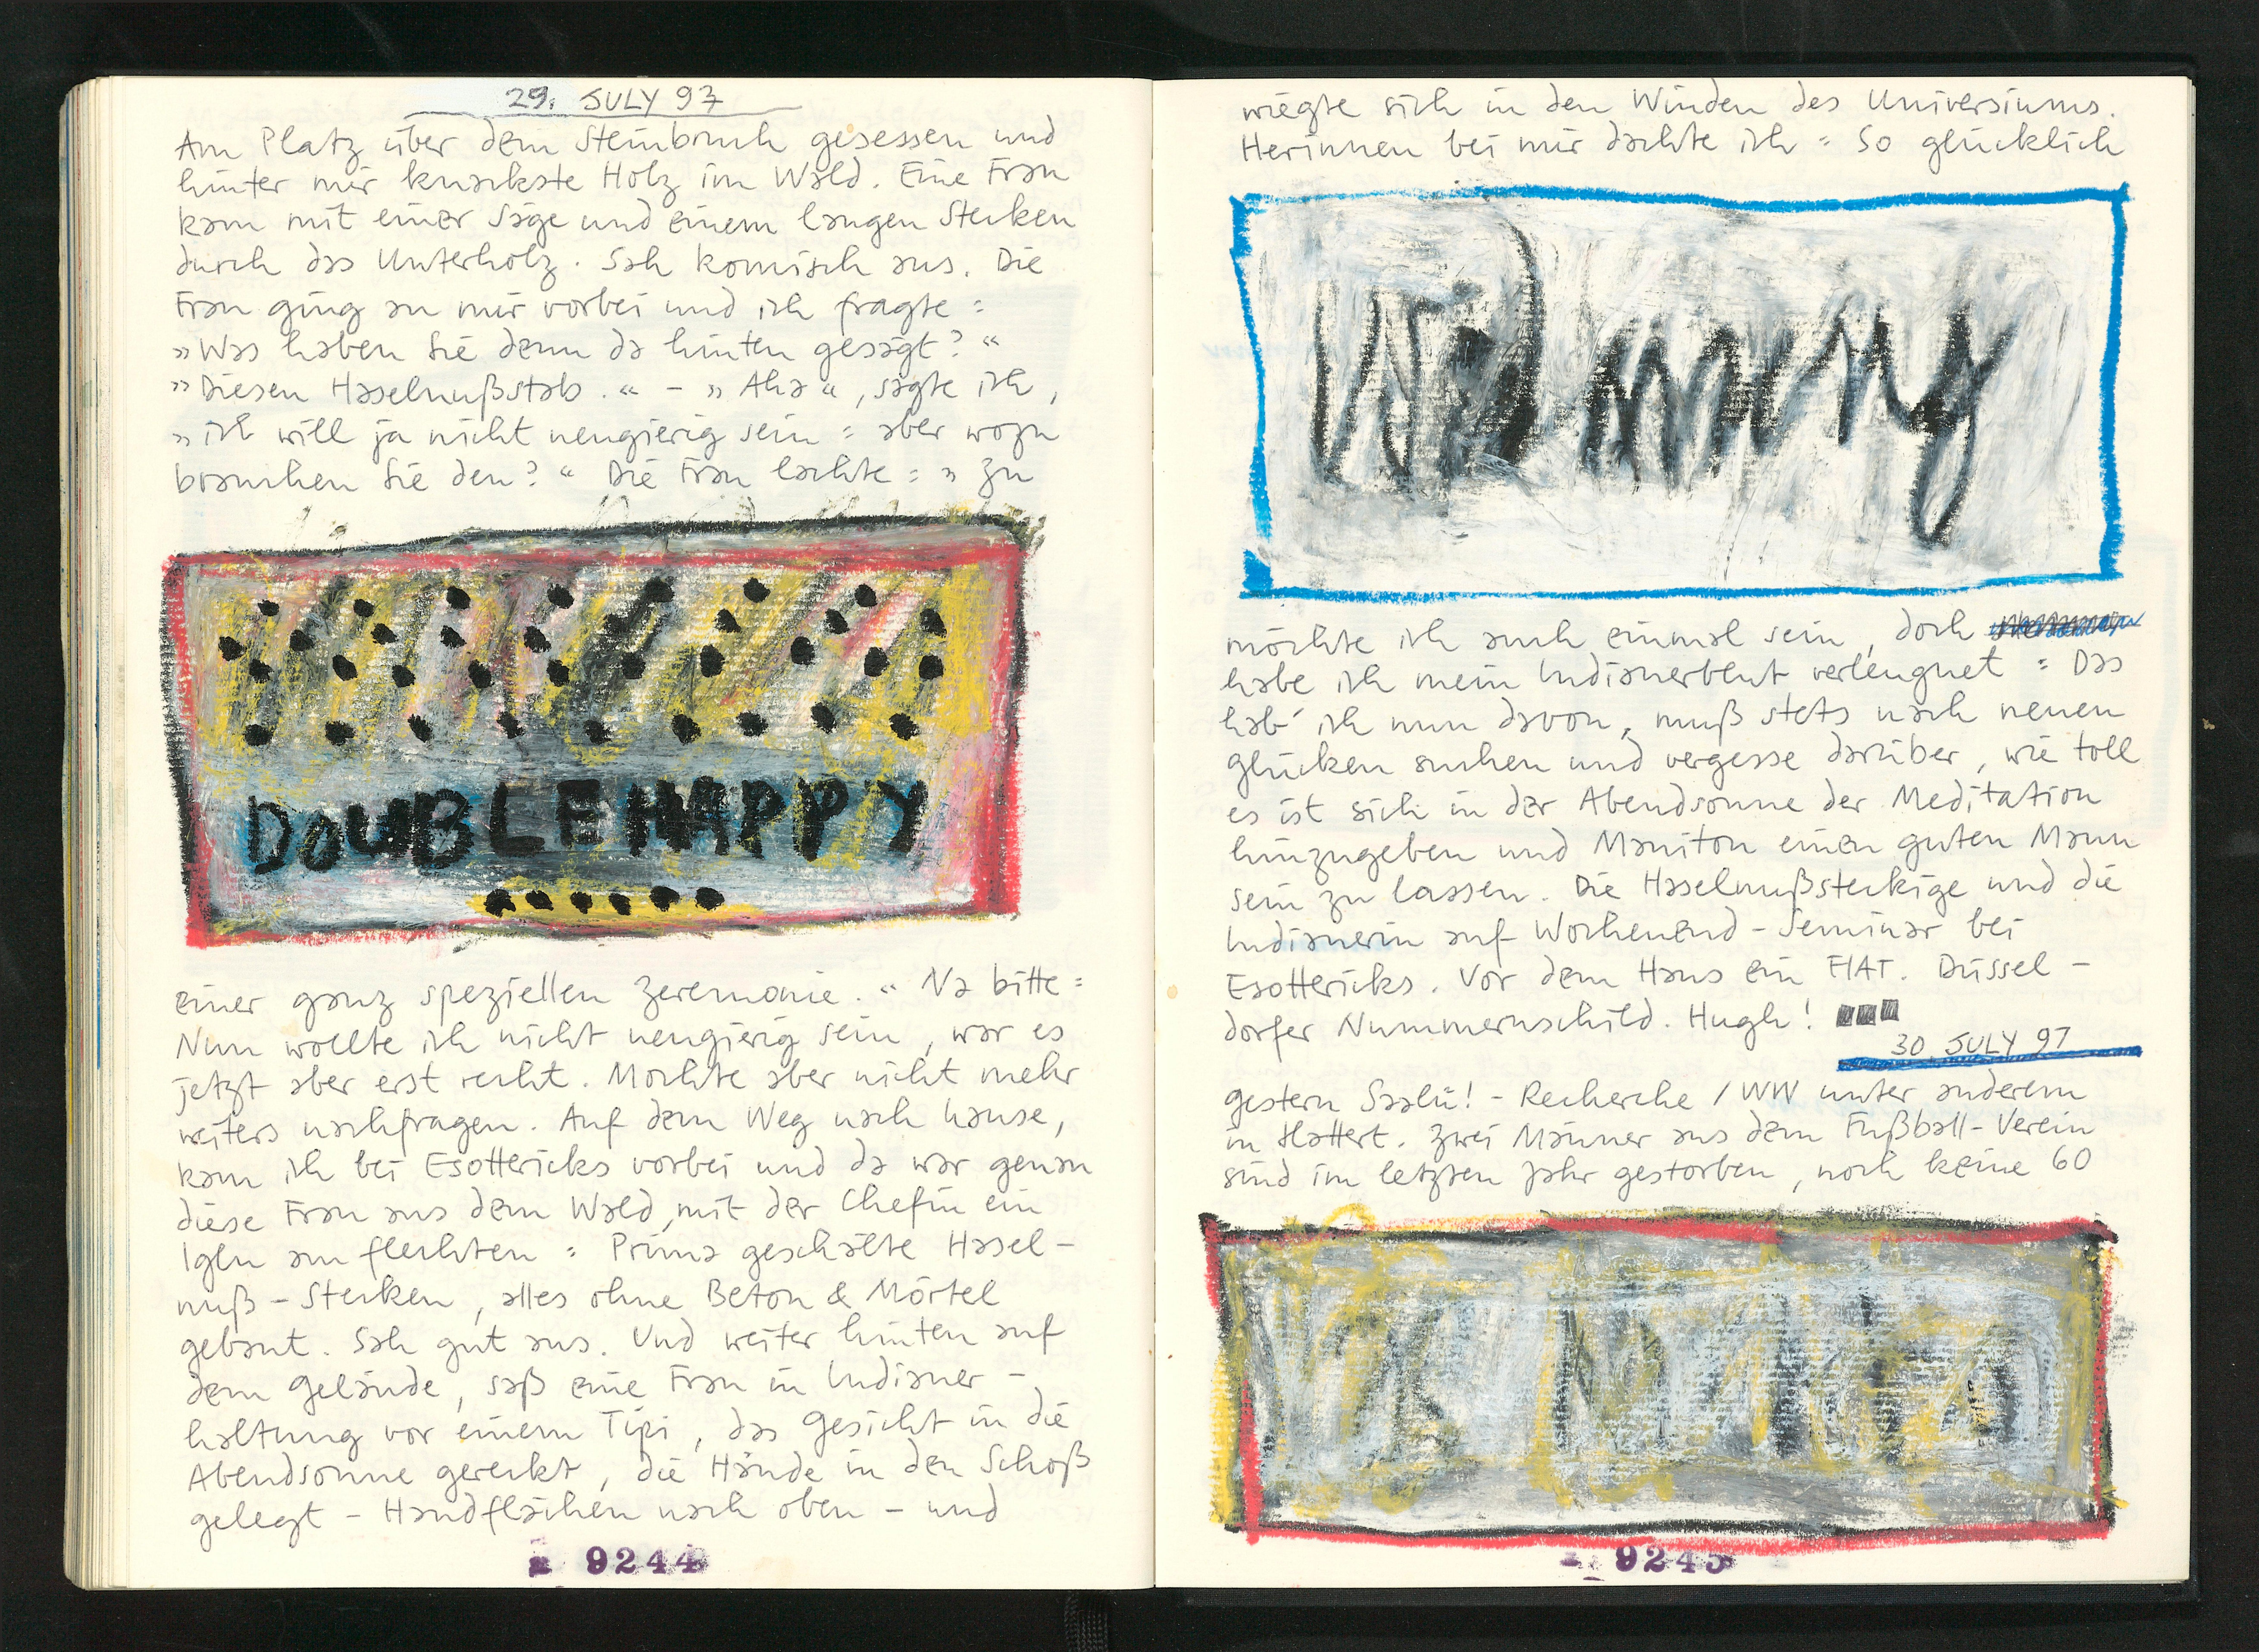 29. JULY 97
Am Platz über dem Steinbruch gesessen und
hinter mir knackste Holz im Wald. Eine Frau
kam mit einer Säge und einem langen Stecken
durch das Unterholz. Sah komisch aus. Die
Frau ging an mir vorbei und ich fragte:
»Was haben Sie denn da hinten gesägt?“
»Diesen Haselnußstab.“ – »Aha“, sagte ich,
»ich will ja nicht neugierig sein: aber wozu
brauchen Sie den?“ Die Frau lachte: »Zu
DOUBLE HAPPY
einer ganz speziellen Zeremonie.“ Na bitte:
Nun wollte ich nicht neugierig sein, war es
jetzt aber erst recht. Mochte aber nicht mehr
weiters nachfragen. Auf dem Weg nach hause,
kam ich bei Esottericks vorbei und da war genau
diese Frau aus dem Wald, mit der Chefin ein
Iglu am flechten: Prima geschälte Hasel-
nuß-Stecken, alles ohne Beton & Mörtel
gebaut. Sah gut aus. Und weiter hinten auf
dem Gelände, saß eine Frau in Indianer-
haltung vor einem Tipi, das Gesicht in die
Abendsonne gereckt, die Hände in den Schoß
gelegt – Handflächen nach oben – und
9244
wiegte sich in den Winden des Universiums.
Herinnen bei mir dachte ich: So glücklich
möchte ich auch einmal sein, doch
habe ich mein Indianerblut verleugnet: Das
hab' ich nun davon, muß stets nach neuen
glücken suchen und vergesse darüber, wie toll
es ist sich in der Abendsonne der Meditation
hinzugeben und Maniton einen guten Mann
sein zu lassen. Die Haselnußsteckige und die
Indianerin auf Wochenend-Seminar bei
Esottericks. Vor dem Haus ein FIAT. Düssel-
dorfer Nummernschild. Hugh!
30. JULY 97
gestern Saalü! - Recherche / WW unter anderem
in Hattert. Zwei Männer aus dem Fußball-Verein
sind im letzten Jahr gestorben, noch keine 60
9245